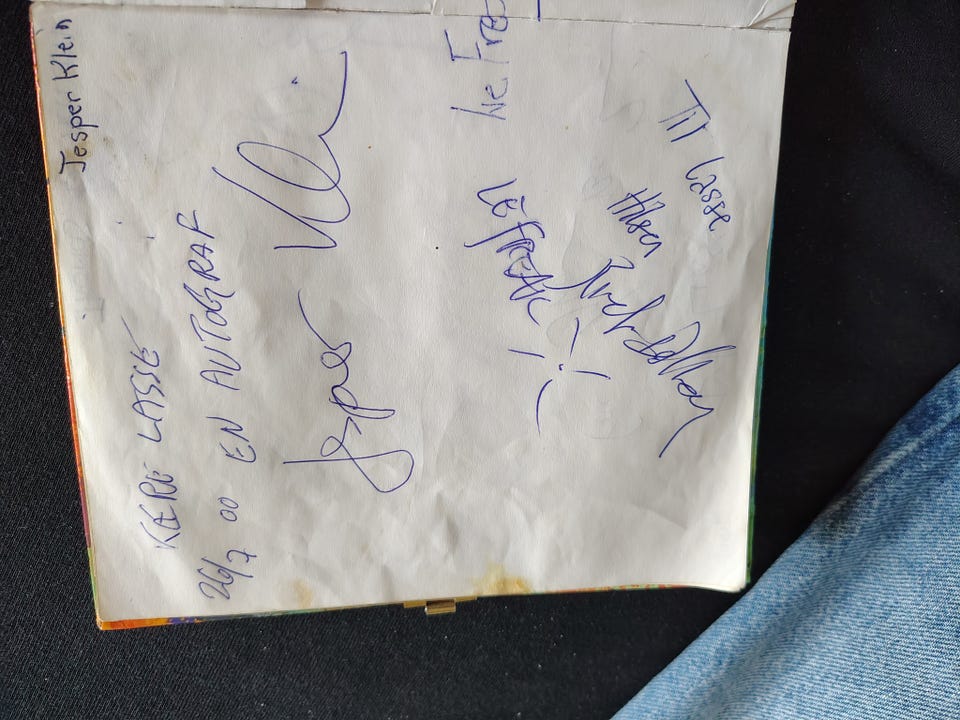 Jesper Klein
KÆRE LASSE
26/7 00 EN AUTOGRAF
Jesper Klein
Le Fre
LE FREAK
Til Lasse
Hilsen